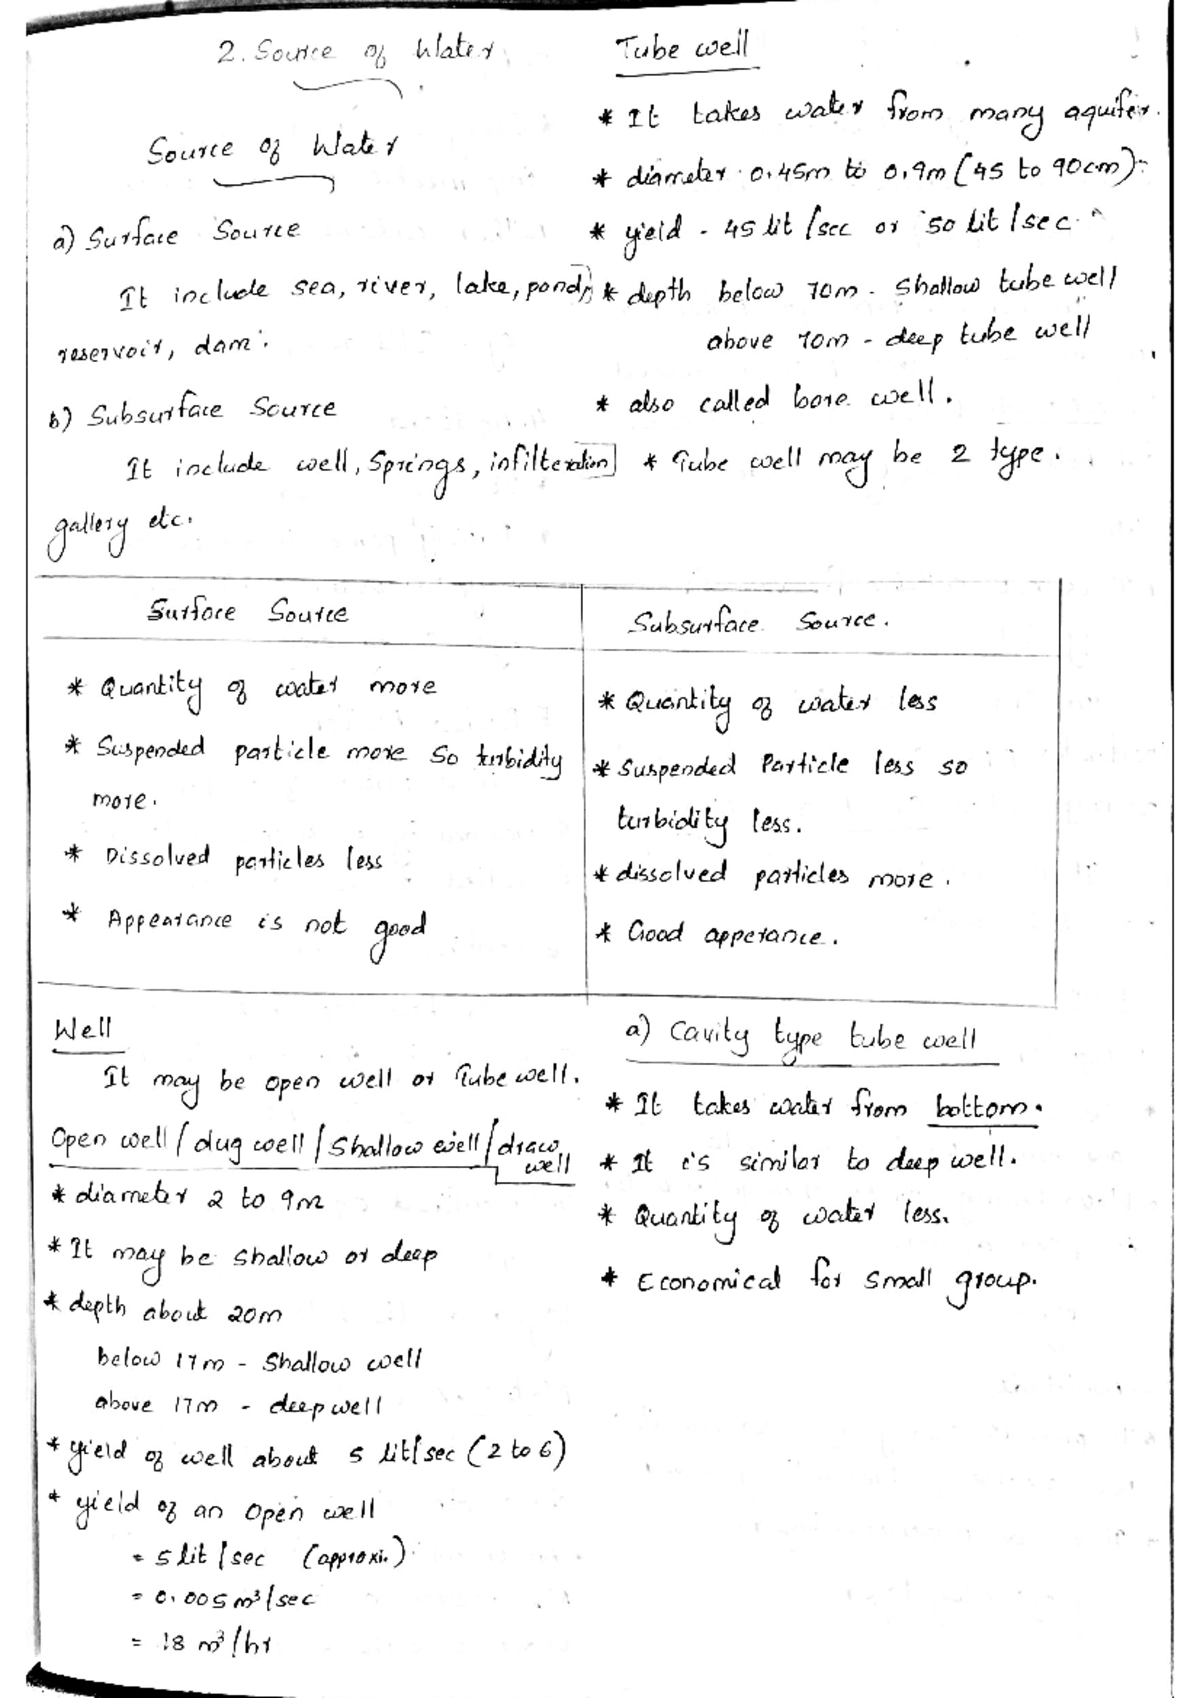 2. Source of Water
Source of Water
a) Surface Source
It include sea, river, lake, pond,
reservoir, dam.
b) Subsurface Source
It include well, Springs, infilteration
gallery etc.
Tube well
* It takes water from many aquifer.
* diameter 0.45m to 0.9m (45 to 90cm)
* yield - 45 lit/sec or 50 lit/sec.
* depth below 70m - Shallow tube well
above 70m - deep tube well
* also called bore well.
* Tube well may be 2 type.
Surface Source
* Quantity of water more
* Suspended particle more so turbidity
more.
* Dissolved particles less
* Appearance is not good
Subsurface Source.
* Quantity of water less
* Suspended Particle less so
turbidity less.
* dissolved particles more.
* Good apperance.
Well
It may be open well or Tube well.
Open well / dug well / Shallow well / draw
well
* diameter 2 to 9m
* It may be shallow or deep
* depth about 20m
below 17m - Shallow well
above 17m - deep well
* yield of well about 5 lit/sec (2 to 6)
* yield of an Open well
= 5 lit/sec (approxi.)
= 0.005 m³/sec
= 18 m³/hr
a) Cavity type tube well
* It takes water from bottom.
* It is similar to deep well.
* Quantity of water less.
* Economical for small group.